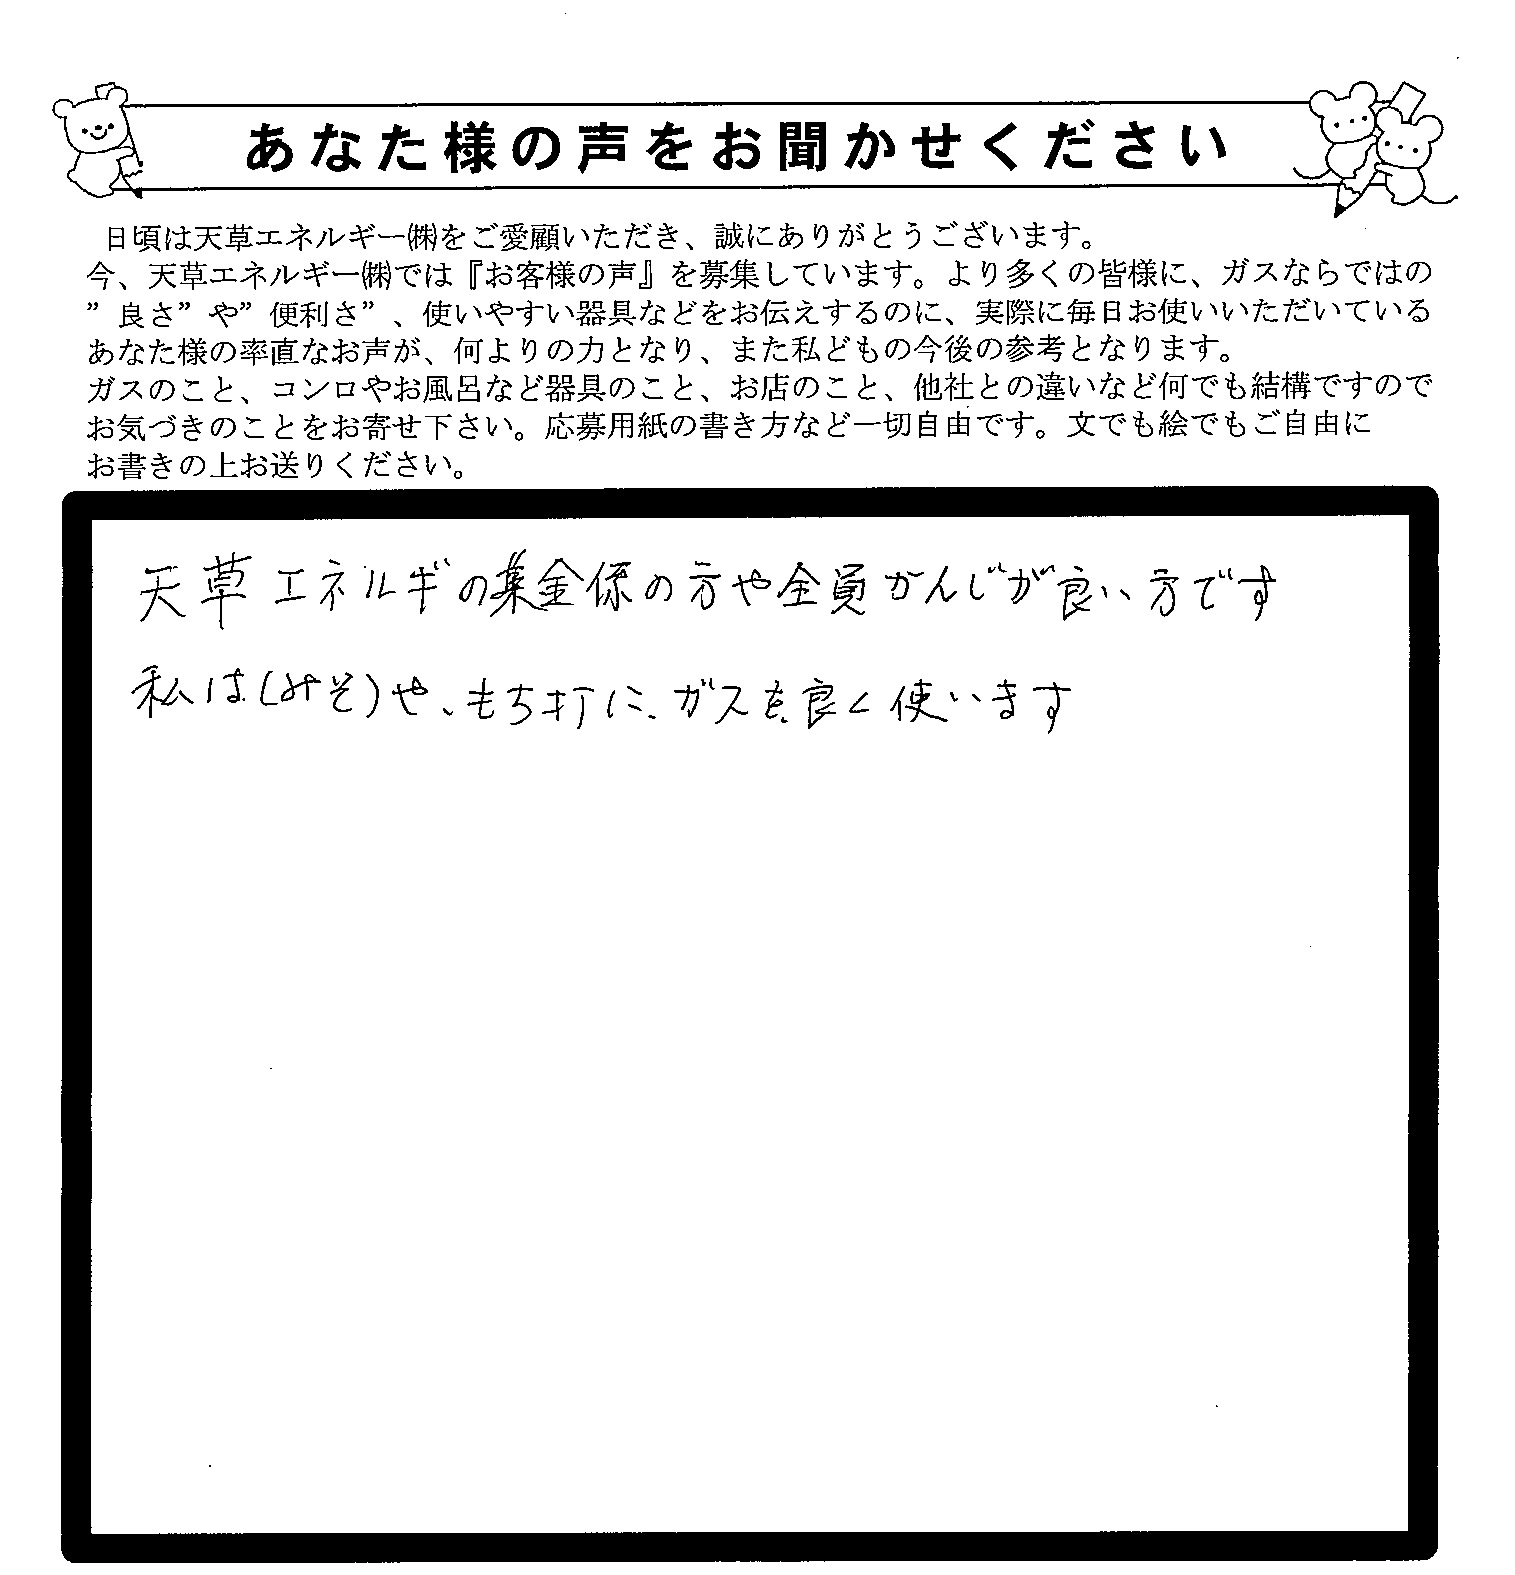 あなた様の声をお聞かせください
日頃は天草エネルギー㈱をご愛顧いただき、誠にありがとうございます。
今、天草エネルギー㈱では『お客様の声』を募集しています。より多くの皆様に、ガスならではの
”良さ”や”便利さ”、使いやすい器具などをお伝えするのに、実際に毎日お使いいただいている
あなた様の率直なお声が、何よりの力となり、また私どもの今後の参考となります。
ガスのこと、コンロやお風呂など器具のこと、お店のこと、他社との違いなど何でも結構ですので
お気づきのことをお寄せ下さい。応募用紙の書き方など一切自由です。文でも絵でもご自由に
お書きの上お送りください。
天草エネルギの集金係の方や全員かんじが良い方です
私は(みそ)や、もち打に、ガスを良く使います